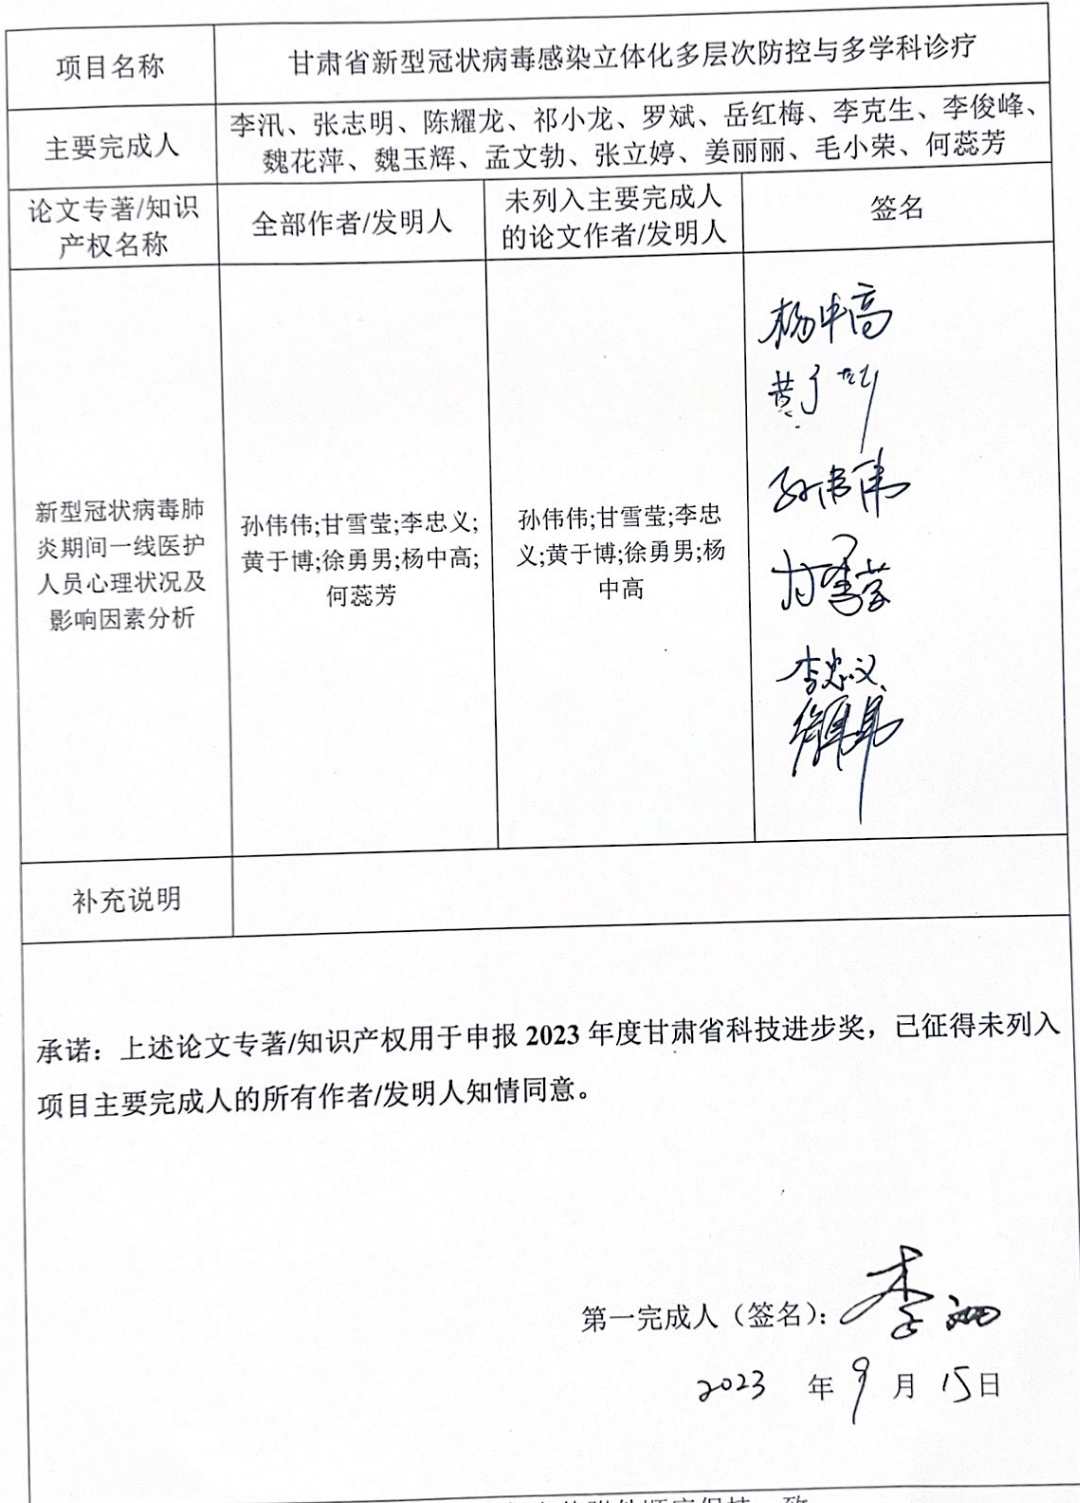 项目名称
甘肃省新型冠状病毒感染立体化多层次防控与多学科诊疗
主要完成人
李汛、张志明、陈耀龙、祁小龙、罗斌、岳红梅、李克生、李俊峰、
魏花萍、魏玉辉、孟文勃、张立婷、姜丽丽、毛小荣、何蕊芳
论文专著/知识
产权名称
全部作者/发明人
未列入主要完成人
的论文作者/发明人
签名
新型冠状病毒肺
炎期间一线医护
人员心理状况及
影响因素分析
孙伟伟;甘雪莹;李忠义;
黄于博;徐勇男;杨中高;
何蕊芳
孙伟伟;甘雪莹;李忠
义;黄于博;徐勇男;杨
中高
杨中高
孙伟伟
甘雪莹
李忠义
补充说明
承诺：上述论文专著/知识产权用于申报 2023 年度甘肃省科技进步奖，已征得未列入
项目主要完成人的所有作者/发明人知情同意。
第一完成人（签名）：李汛
2023 年 9 月 15 日